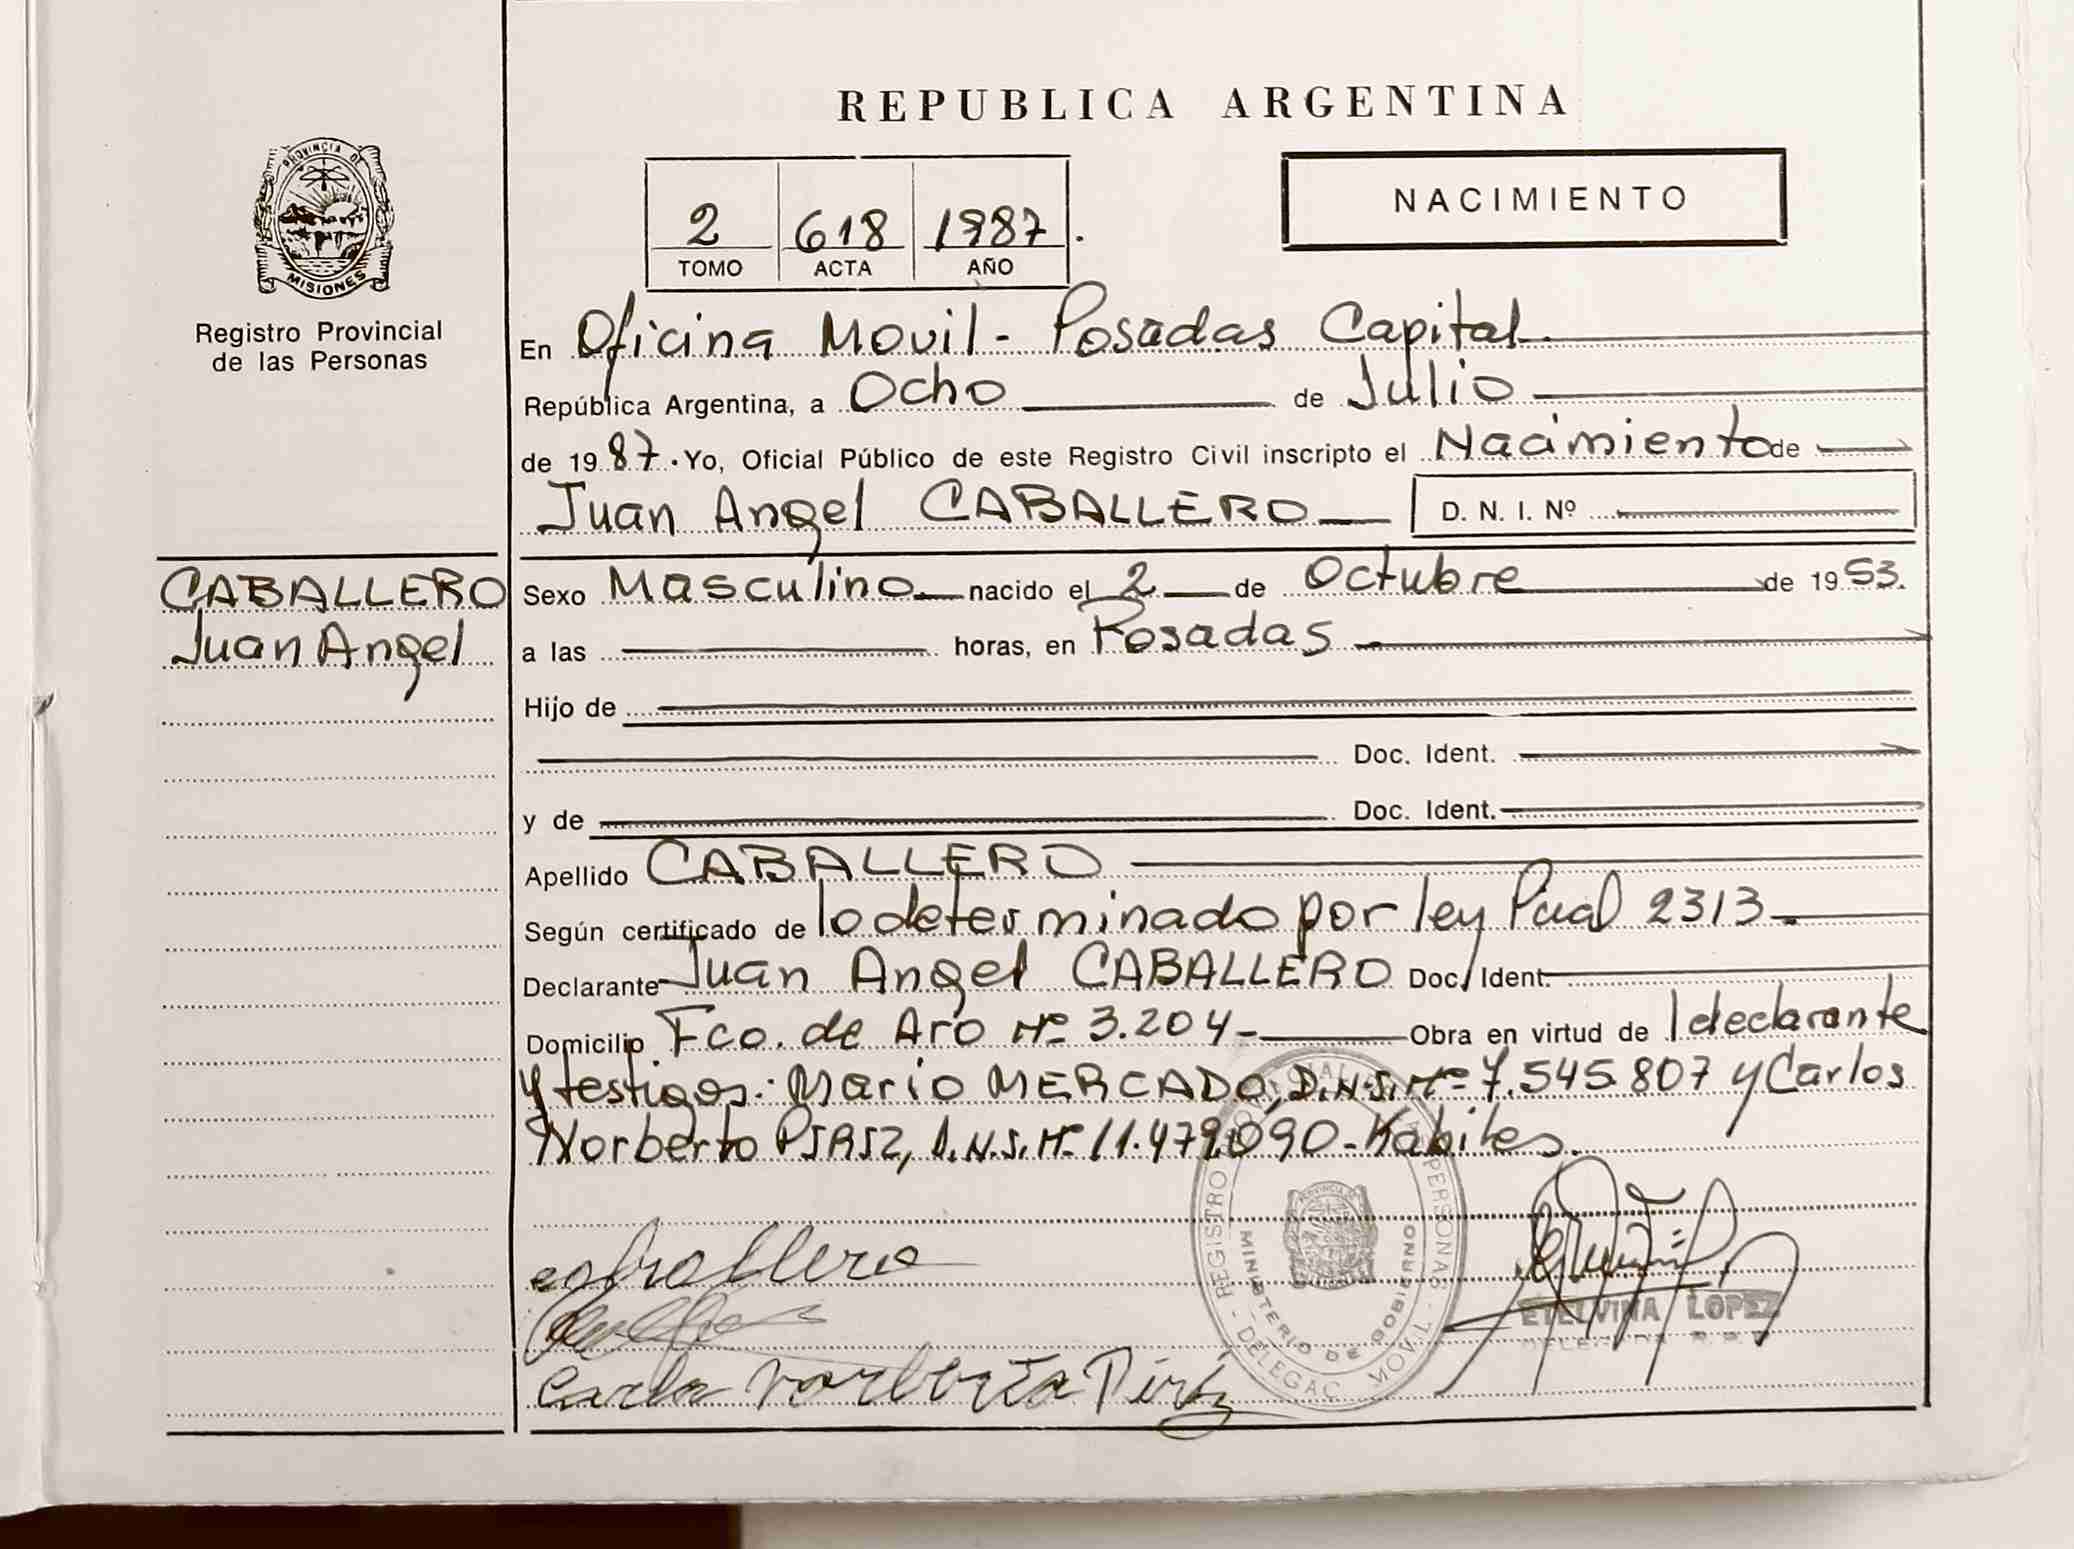 REPUBLICA ARGENTINA
PROVINCIA DE
MISIONES
Registro Provincial
de las Personas
2 618 1987.
TOMO ACTA AÑO
NACIMIENTO
En Oficina Movil - Posadas Capital
República Argentina, a Ocho de Julio
de 1987. Yo, Oficial Público de este Registro Civil inscripto el Nacimiento de
Juan Angel CABALLERO D. N. I. Nº
CABALLERO
Juan Angel
Sexo Masculino nacido el 2 de Octubre de 1953.
a las horas, en Posadas
Hijo de
Doc. Ident.
y de Doc. Ident.
Apellido CABALLERO
Según certificado de lo determinado por ley Pcial 2313
Declarante Juan Angel CABALLERO Doc. Ident.
Domicilio Fco. de Aro Nº 3.204 - Obra en virtud de l declarante
y testigos: Mario MERCADO, D.N.I. Nº 7.545.807 y Carlos
Norberto D.N.I. Nº 11.479.090 - Habiles.
REGISTRO PROVINCIAL DE LAS PERSONAS - DELEGAC. MOVIL -
MINISTERIO DE GOBIERNO
Caballero
ETELVINA LOPEZ
Norberto